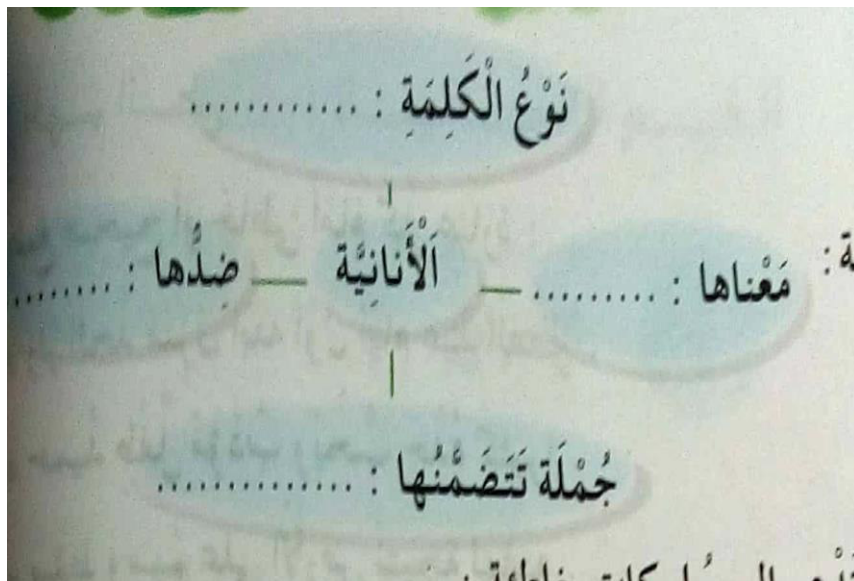 نَوْعُ الْكَلِمَةِ : ............
مَعْناها : ......... اَلْأَنانِيَّة ضِدُّها : ........
جُمْلَة تَتَضَمَّنُها : ...............